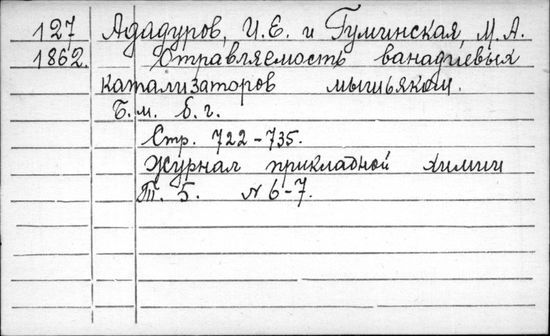 127 Ададуров, И.Е. и Гуминская, М.А.
1862. Отравляемость ванадиевых
катализаторов мышьяком.
Б.м. б.г.
Стр. 722-735.
Журнал прикладной химии
Т. 5. N 6-7.